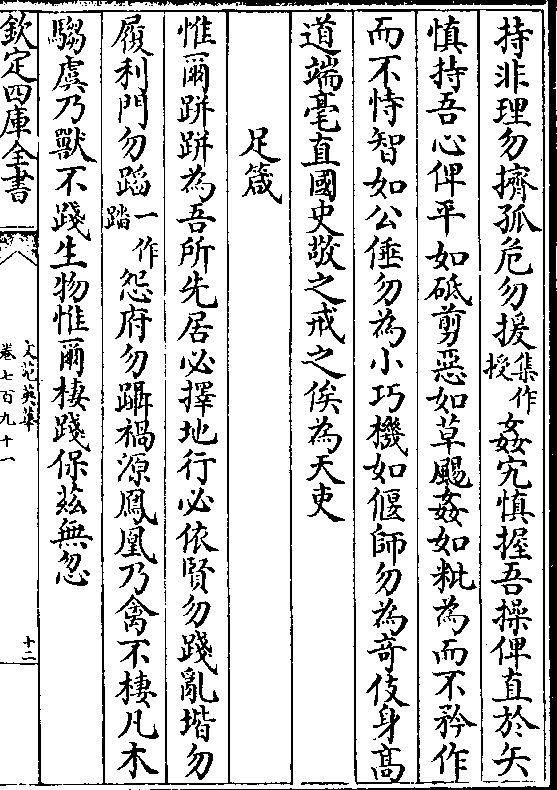 持非理勿擠孤危勿援集作授姦宄慎握吾操俾直於矢
慎持吾心俾平如砥剪惡如草颺姦如粃為而不矜作
而不恃智如公倕勿為小巧機如偃師勿為奇伎身髙
道端毫直國史敬之戒之俟為天吏
足箴
惟爾跰跰為吾所先居必擇地行必依賢勿踐亂堦勿
履利門勿蹈一作踏怨府勿躡禍源鳳凰乃禽不棲凡木
騶虞乃獸不踐生物惟爾棲踐保茲無忽
欽定四庫全書
文苑英華
卷七百九十一
十二